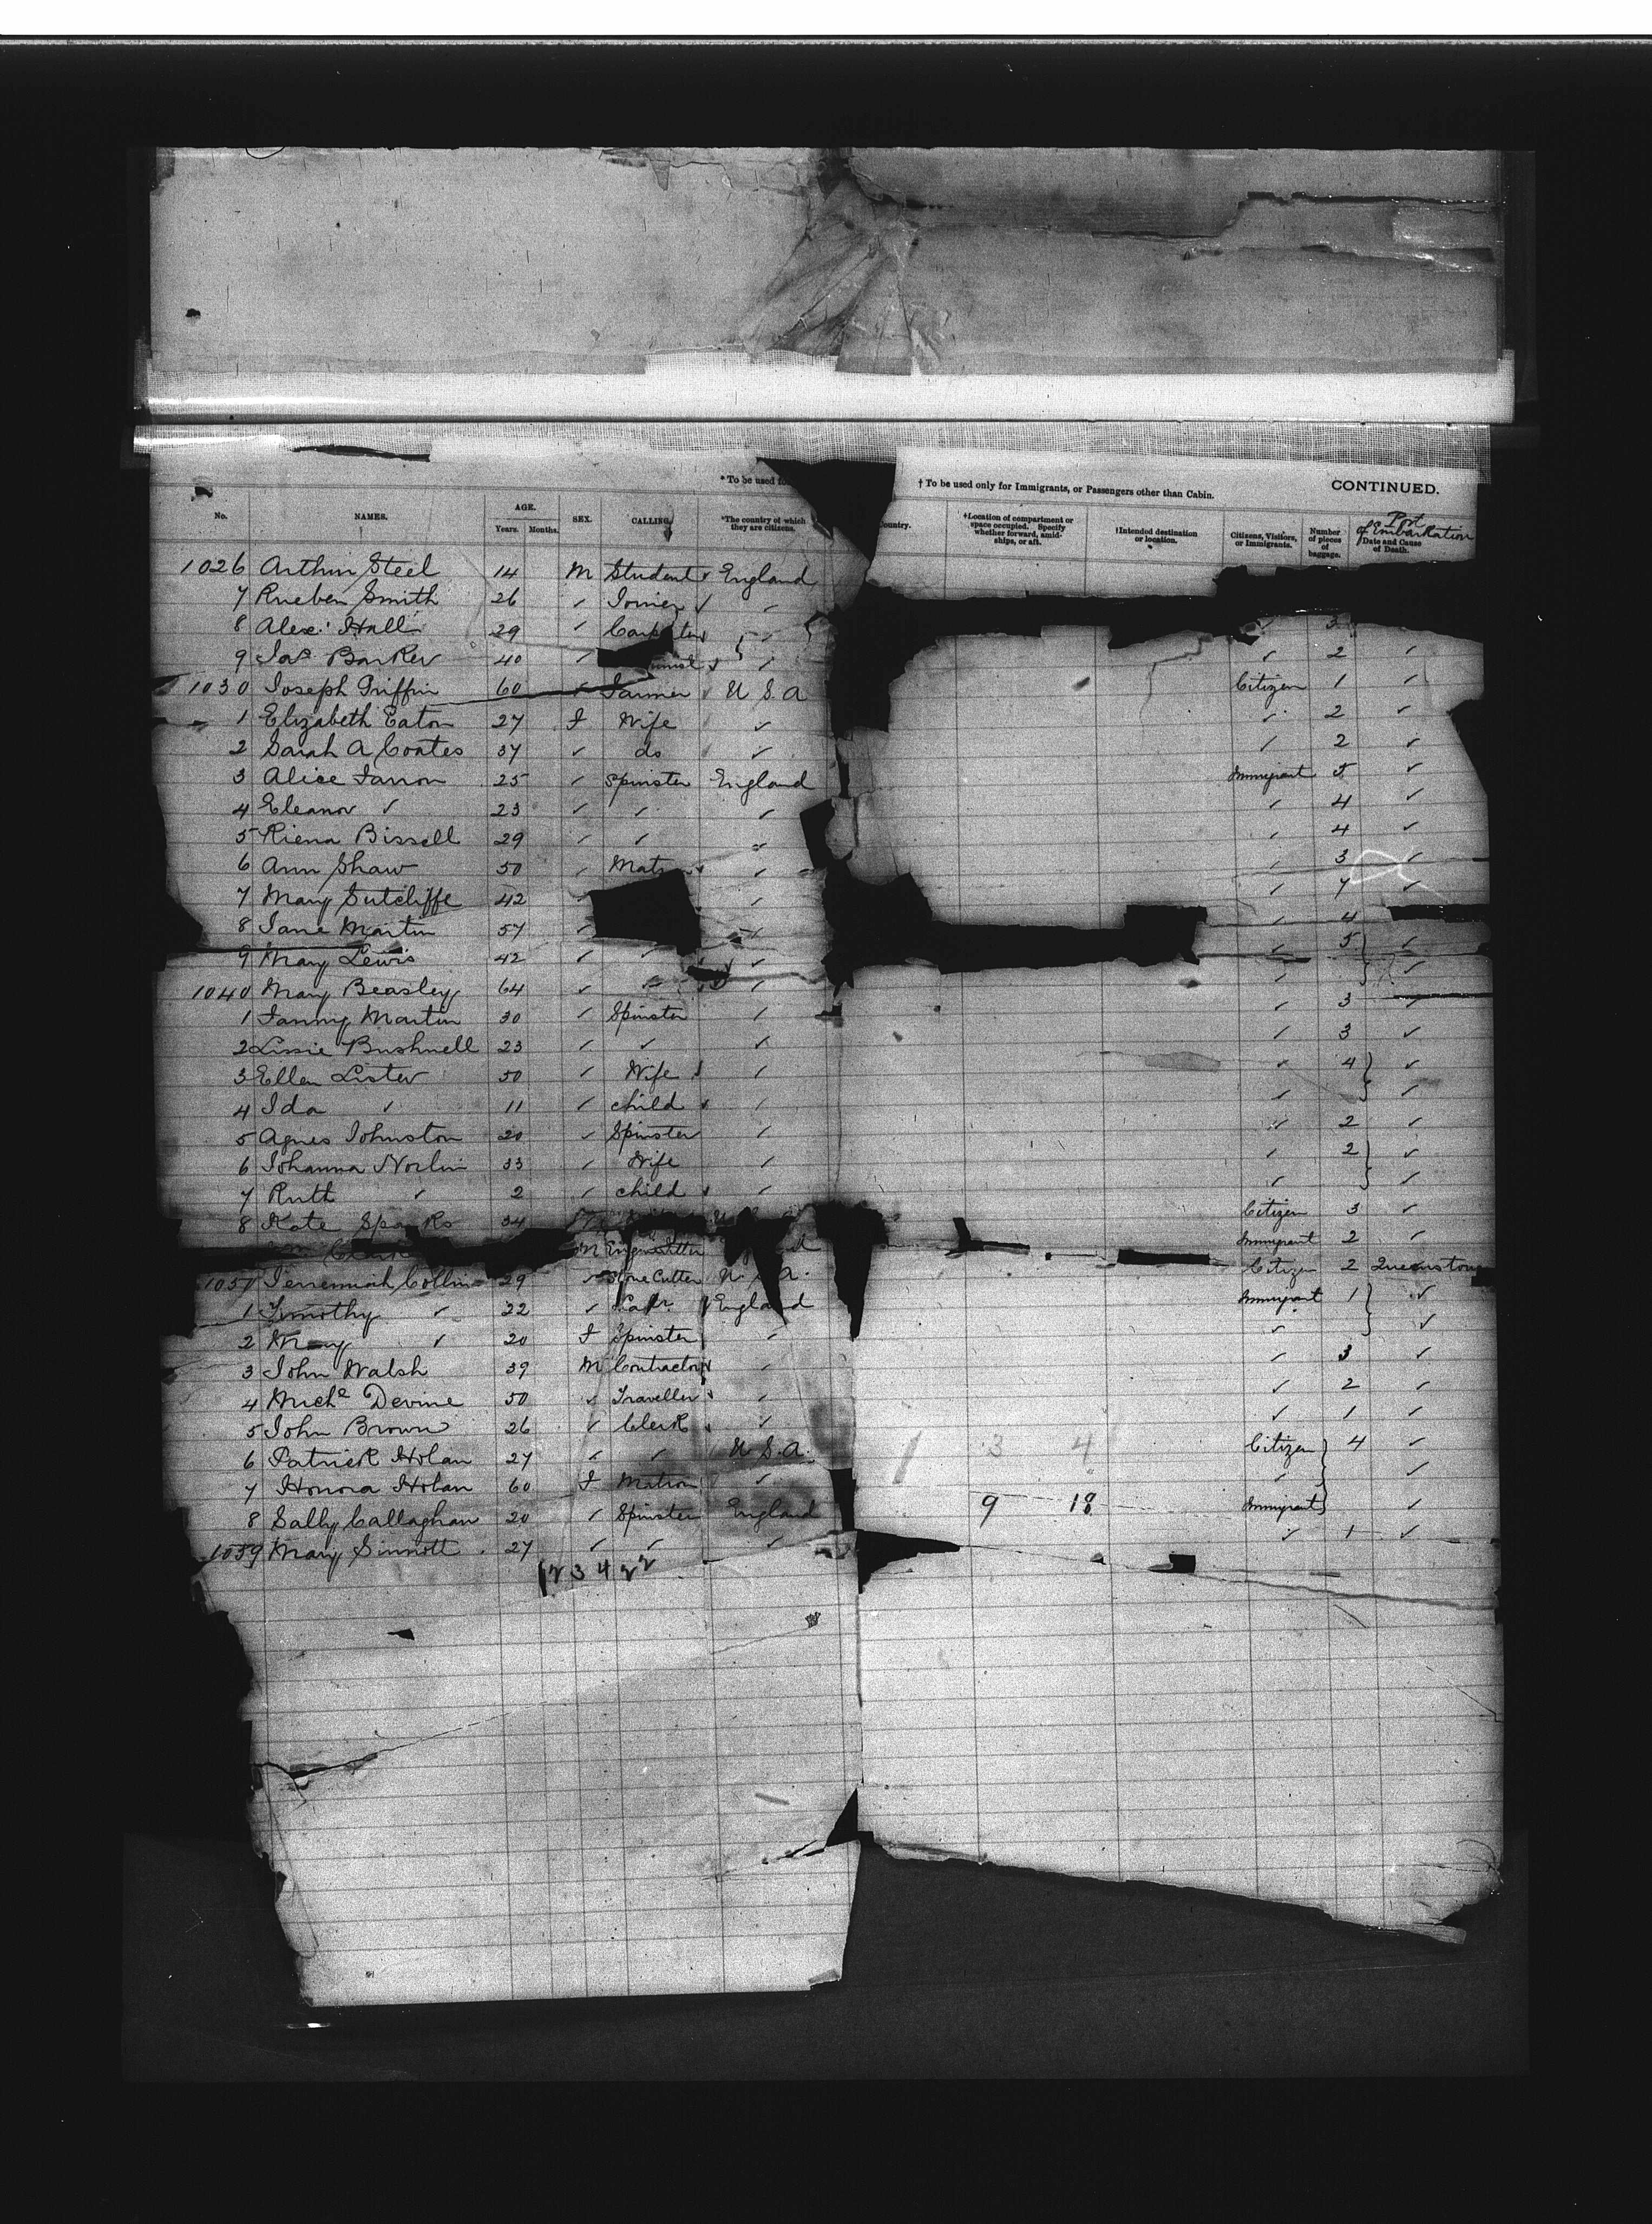 * To be used fo † To be used only for Immigrants, or Passengers other than Cabin. CONTINUED.
No. NAMES. AGE. Years. Months. SEX. CALLING. *The country of which they are citizens. ountry. †Location of compartment or space occupied. Specify whether forward, amid-ships, or aft. †Intended destination or location. Citizens, Visitors, or Immigrants. Number of pieces of baggage. Port of Embarkation Date and Cause of Death.
1026 Arthur Steel 14 M Student England
7 Rueben Smith 26 ✓ Joiner ✓
8 Alex. Hall 29 ✓ ✓ ✓ 3
9 Jas Barker 40 ✓ ✓ ✓ 2 ✓
1030 Joseph Griffin 60 ✓ Farmer U S. A Citizen 1 ✓
1 Elizabeth Eaton 27 F Wife ✓ ✓ 2 ✓
2 Sarah A Coates 37 ✓ do ✓ ✓ 2 ✓
3 Alice Farron 25 ✓ Spinster England Immigrant 5 ✓
4 Eleanor ✓ 23 ✓ ✓ ✓ ✓ 4 ✓
5 Riena Bissell 29 ✓ ✓ ✓ ✓ 4 ✓
6 Ann Shaw 50 ✓ Mat ✓ ✓ 3 ✓
7 Mary Sutcliffe 42 ✓ ✓ ✓ 7 ✓
8 Jane Martin 57 ✓ ✓ ✓ 4
9 Mary Lewis 42 ✓ ✓ ✓ ✓ 5 ✓
1040 Mary Beasley 64 ✓ ✓ ✓ ✓ ✓
1 Fanny Martin 30 ✓ Spinster ✓ ✓ 3 ✓
2 Lissie Bushnell 23 ✓ ✓ ✓ ✓ 3 ✓
3 Ellen Lister 50 ✓ Wife ✓ ✓ 4 ✓
4 Ida ✓ 11 ✓ child ✓ ✓ ✓
5 Agnes Johnston 20 ✓ Spinster ✓ ✓ 2 ✓
6 Johanna Norlin 33 ✓ Wife ✓ ✓ 2 ✓
7 Ruth ✓ 2 ✓ child ✓ ✓ ✓
8 Kate Sparks 34 Citizen 3 ✓
M Immigrant 2 ✓
Jerremiah Collins 29 ✓ Stone Cutter U. S A. Citizen 2 Queenstown
1 Timothy ✓ 22 ✓ England Immigrant 1 ✓
2 Mary ✓ 20 F Spinster ✓ ✓ ✓
3 John Walsh 39 M Contractor ✓ ✓ 3 ✓
4 Miche Devine 50 ✓ Traveller ✓ ✓ 2 ✓
5 John Brown 26 ✓ Clerk ✓ ✓ 1 ✓
6 Patrick Hoban 27 ✓ ✓ U S. A. 1 3 4 Citizen 4 ✓
7 Honora Hoban 60 F Matron ✓ ✓ ✓
8 Sally Callaghan 20 ✓ Spinster England 9 18 Immigrant ✓
1059 Mary Sinnott 27 ✓ ✓ ✓ ✓ 1 ✓